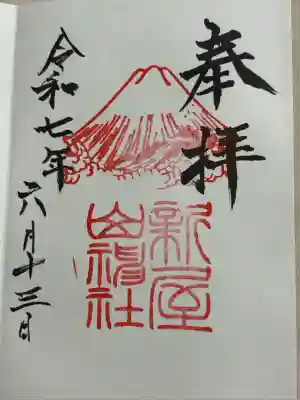 奉拝
新屋
山神社
令和七年六月十三日